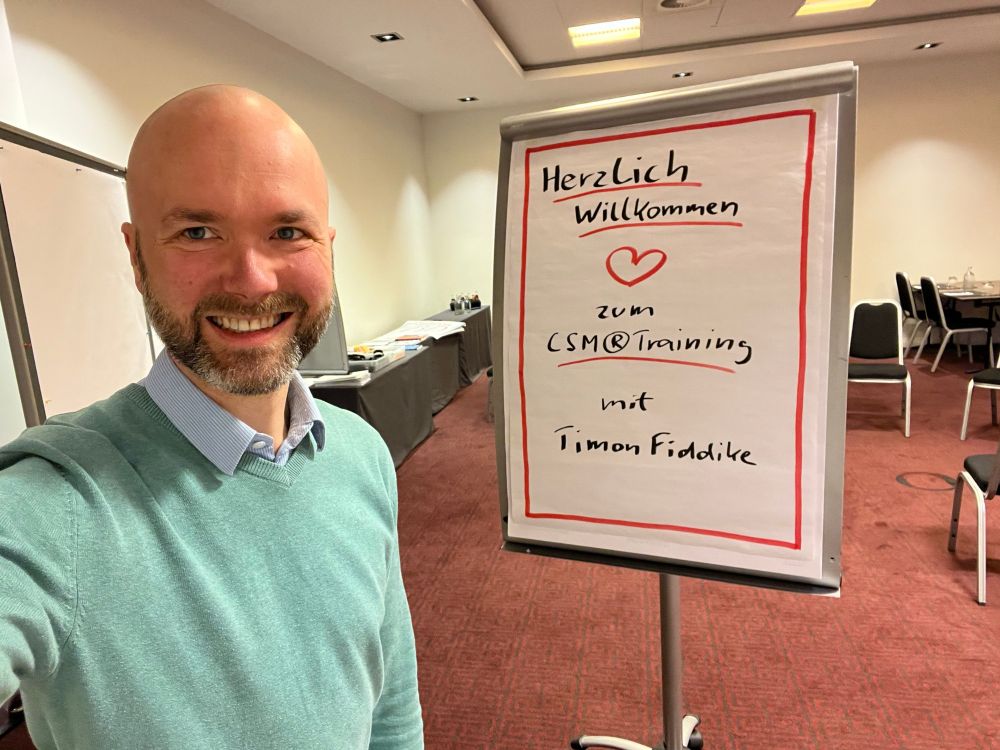 Herzlich
Willkommen
zum
CSM® Training
mit
Timon Fiddike